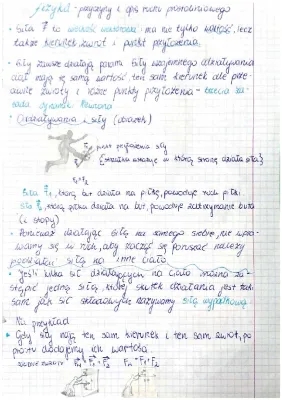 fizyka - przyczyny i opis ruchu prostoliniowego
• Siła F to wielkość wektorowa: ma nie tylko wartość, lecz
także kierunek zwrot i punkt przyłożenia.
• Siły zawsze działają parami. Siły wzajemnego oddziaływania
ciał mają tę samą wartość, ten sam kierunek ale prze-
ciwne zwroty i różne punkty przyłożenia - trzecia za-
sada dynamiki Newtona
• Oddziaływania i siły (obrazek)
punkt przyłożenia siły
(strzałka wskazuje w którą stronę działa siła)
F₁ = F₂
Siła F₁, którą but działa na piłkę, powoduje ruch piłki.
siła F₂, którą piłka działa na but, powoduje zatrzymanie buta
(i stopy)
• Ponieważ działając siłą na samego siebie, nie wpra-
wiamy się w ruch, aby zacząć się poruszać należy
podziałać siłą na inne ciało.
• Jeśli kilka sił działających na ciało można za-
stąpić jedną siłą, której skutek działania jest taki
sam, jak sił składowych nazywamy siłą wypadkową.
Na przykład
• Gdy siły mają ten sam kierunek i ten sam zwrot, po
prostu dodajemy ich wartości.